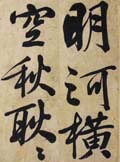 明河橫
空秋耿〻